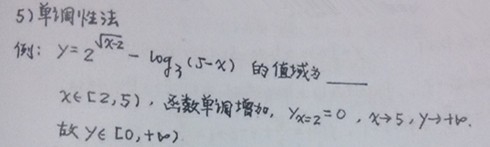 5) 单调性法
例: y=2^{√(x-2)} - log₃(5-x) 的值域为____
x∈[2,5), 函数单调增加, y_{x=2}=0, x→5, y→+∞.
故 y∈[0,+∞)